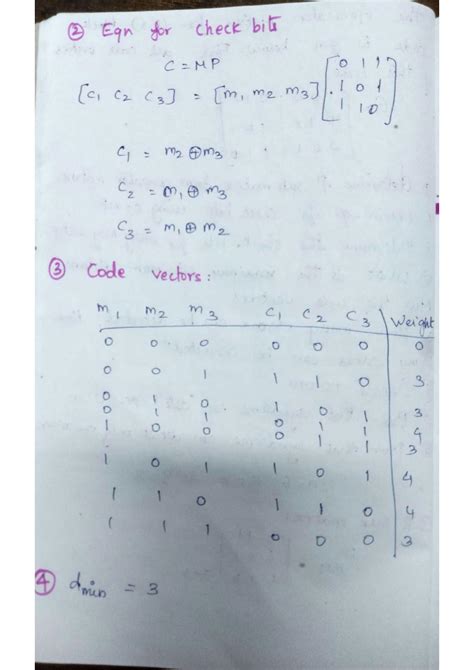 ② Eqn for check bits
C = MP
[C1 C2 C3] = [m1 m2 m3] [0 1 1
1 0 1
1 1 0]
C1 = m2 ⊕ m3
C2 = m1 ⊕ m3
C3 = m1 ⊕ m2
③ Code vectors:
m1 m2 m3 C1 C2 C3 Weight
0 0 0 0 0 0 0
0 0 1 1 1 0 3
0 1 0 1 0 1 3
0 1 1 0 1 1 4
1 0 0 0 1 1 3
1 0 1 1 0 1 4
1 1 0 1 1 0 4
1 1 1 0 0 0 3
④ dmin = 3